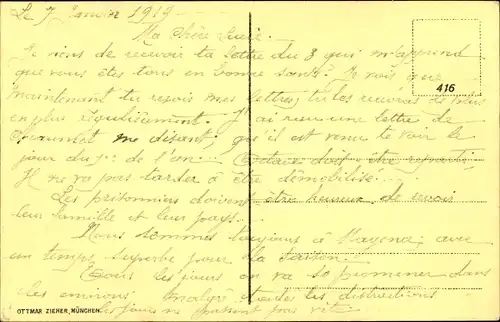 Le 7 Janvier 1919
Ma Chère Lucie.
Je viens de recevoir ta lettre du 3 qui m'apprend
que vous êtes tous en bonne santé. Je vois que
maintenant tu reçois mes lettres, tu les recevras de plus
en plus régulièrement. J'ai reçu une lettre de
me disant, qu'il est venu te voir le
jour du 1er de l'an. doit être reparti,
Il ne va pas tarder à être démobilisé...
Les prisonniers doivent être heureux de revoir
leur famille et leur pays.
Nous sommes toujours à Mayence, avec
un temps superbe pour la saison.
Tous les jours on va se promener dans
les environs. Malgré toutes les distractions
les jours ne passent pas vite
416
OTTMAR ZIEHER, MÜNCHEN.